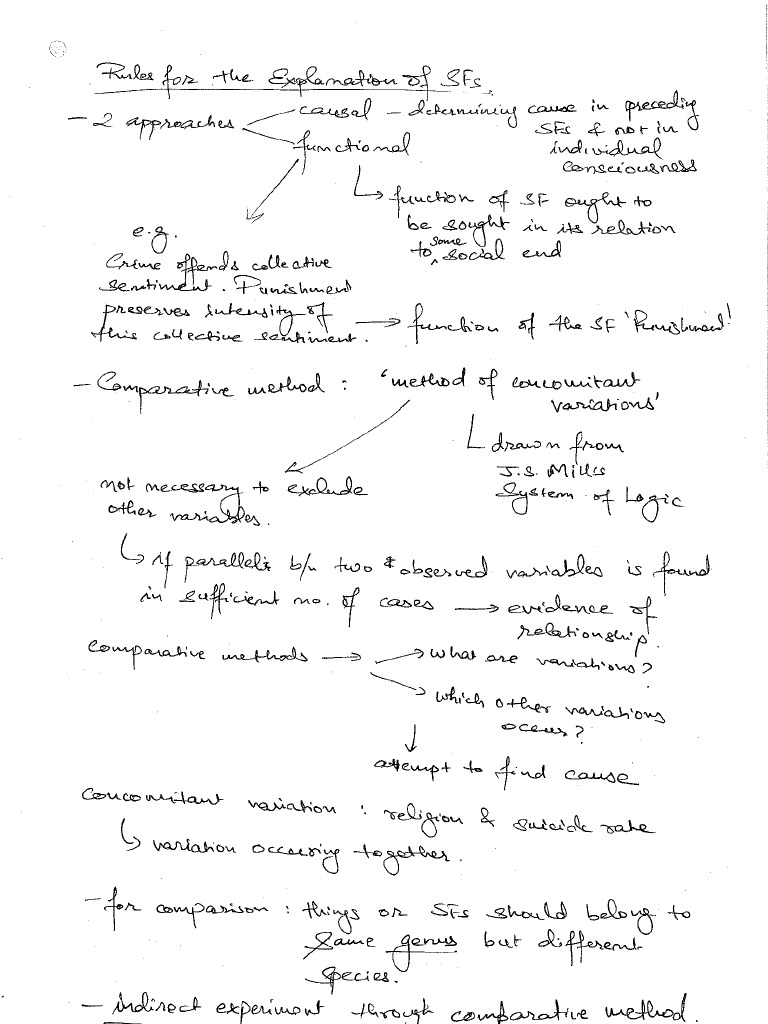 Rules for the Explanation of SFs.
- 2 approaches
causal - determining cause in preceding
SFs & not in
individual
consciousness
functional
function of SF ought to
be sought in its relation
to some social end
e.g.
Crime offends collective
sentiment. Punishment
preserves intensity of
this collective sentiment. → function of the SF 'Punishment'
- Comparative method : 'method of concomitant
variations'
drawn from
J.S. Mill's
System of Logic
not necessary to exclude
other variables.
if parallels b/n two observed variables is found
in sufficient no. of cases → evidence of
relationship.
Comparative methods → → what are variations?
→ which other variations
occur?
↓
attempt to find cause
Concomitant variation : religion & suicide rate
variation occuring together.
- for comparison : things or SFs should belong to
same genus but different
species.
- indirect experiment through comparative method.